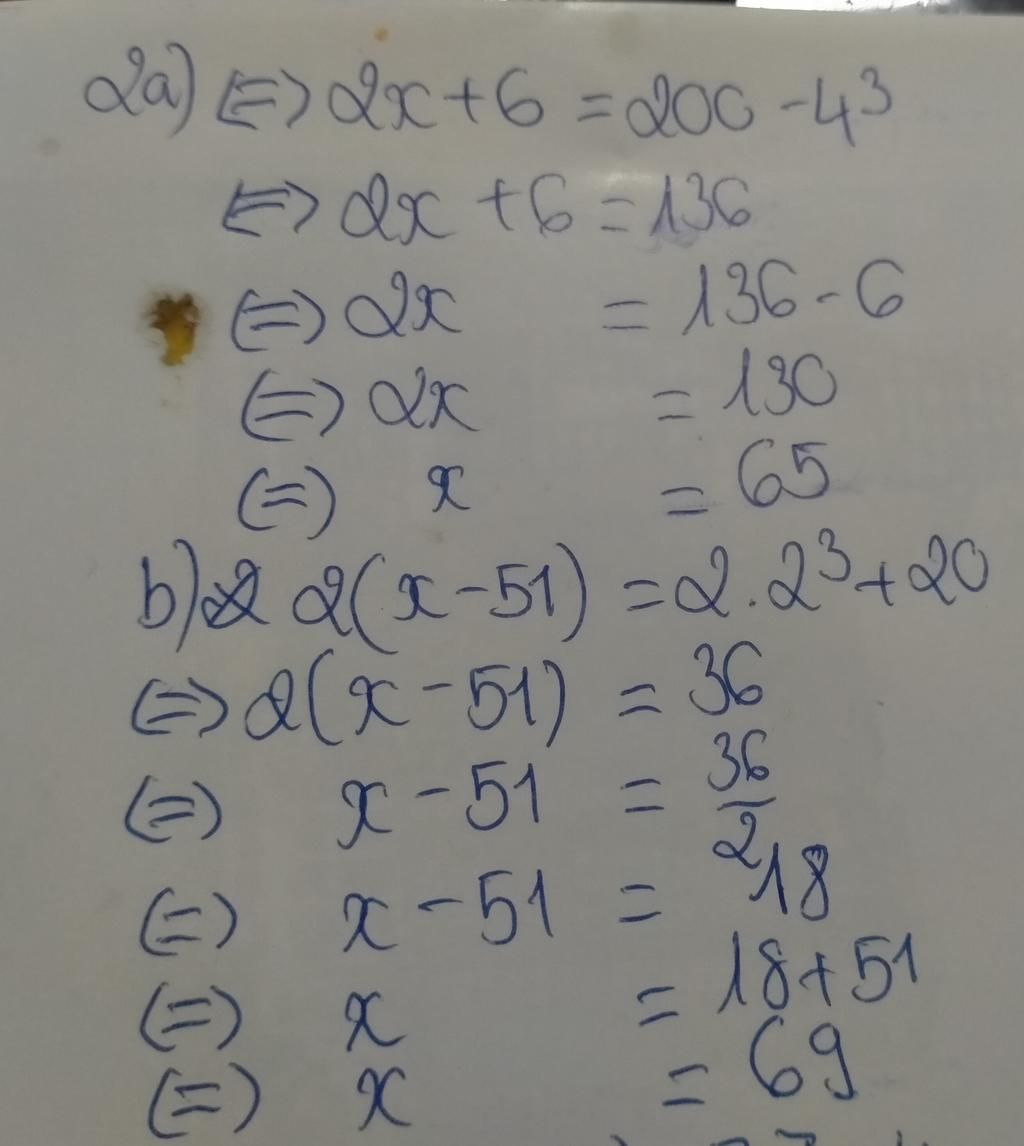 2a) <=> 2x + 6 = 200 - 4³
<=> 2x + 6 = 136
(=) 2x = 136 - 6
(=) 2x = 130
(=) x = 65
b) 2(x - 51) = 2 . 2³ + 20
(=) 2(x - 51) = 36
(=) x - 51 = 36/2
(=) x - 51 = 18
(=) x = 18 + 51
(=) x = 69